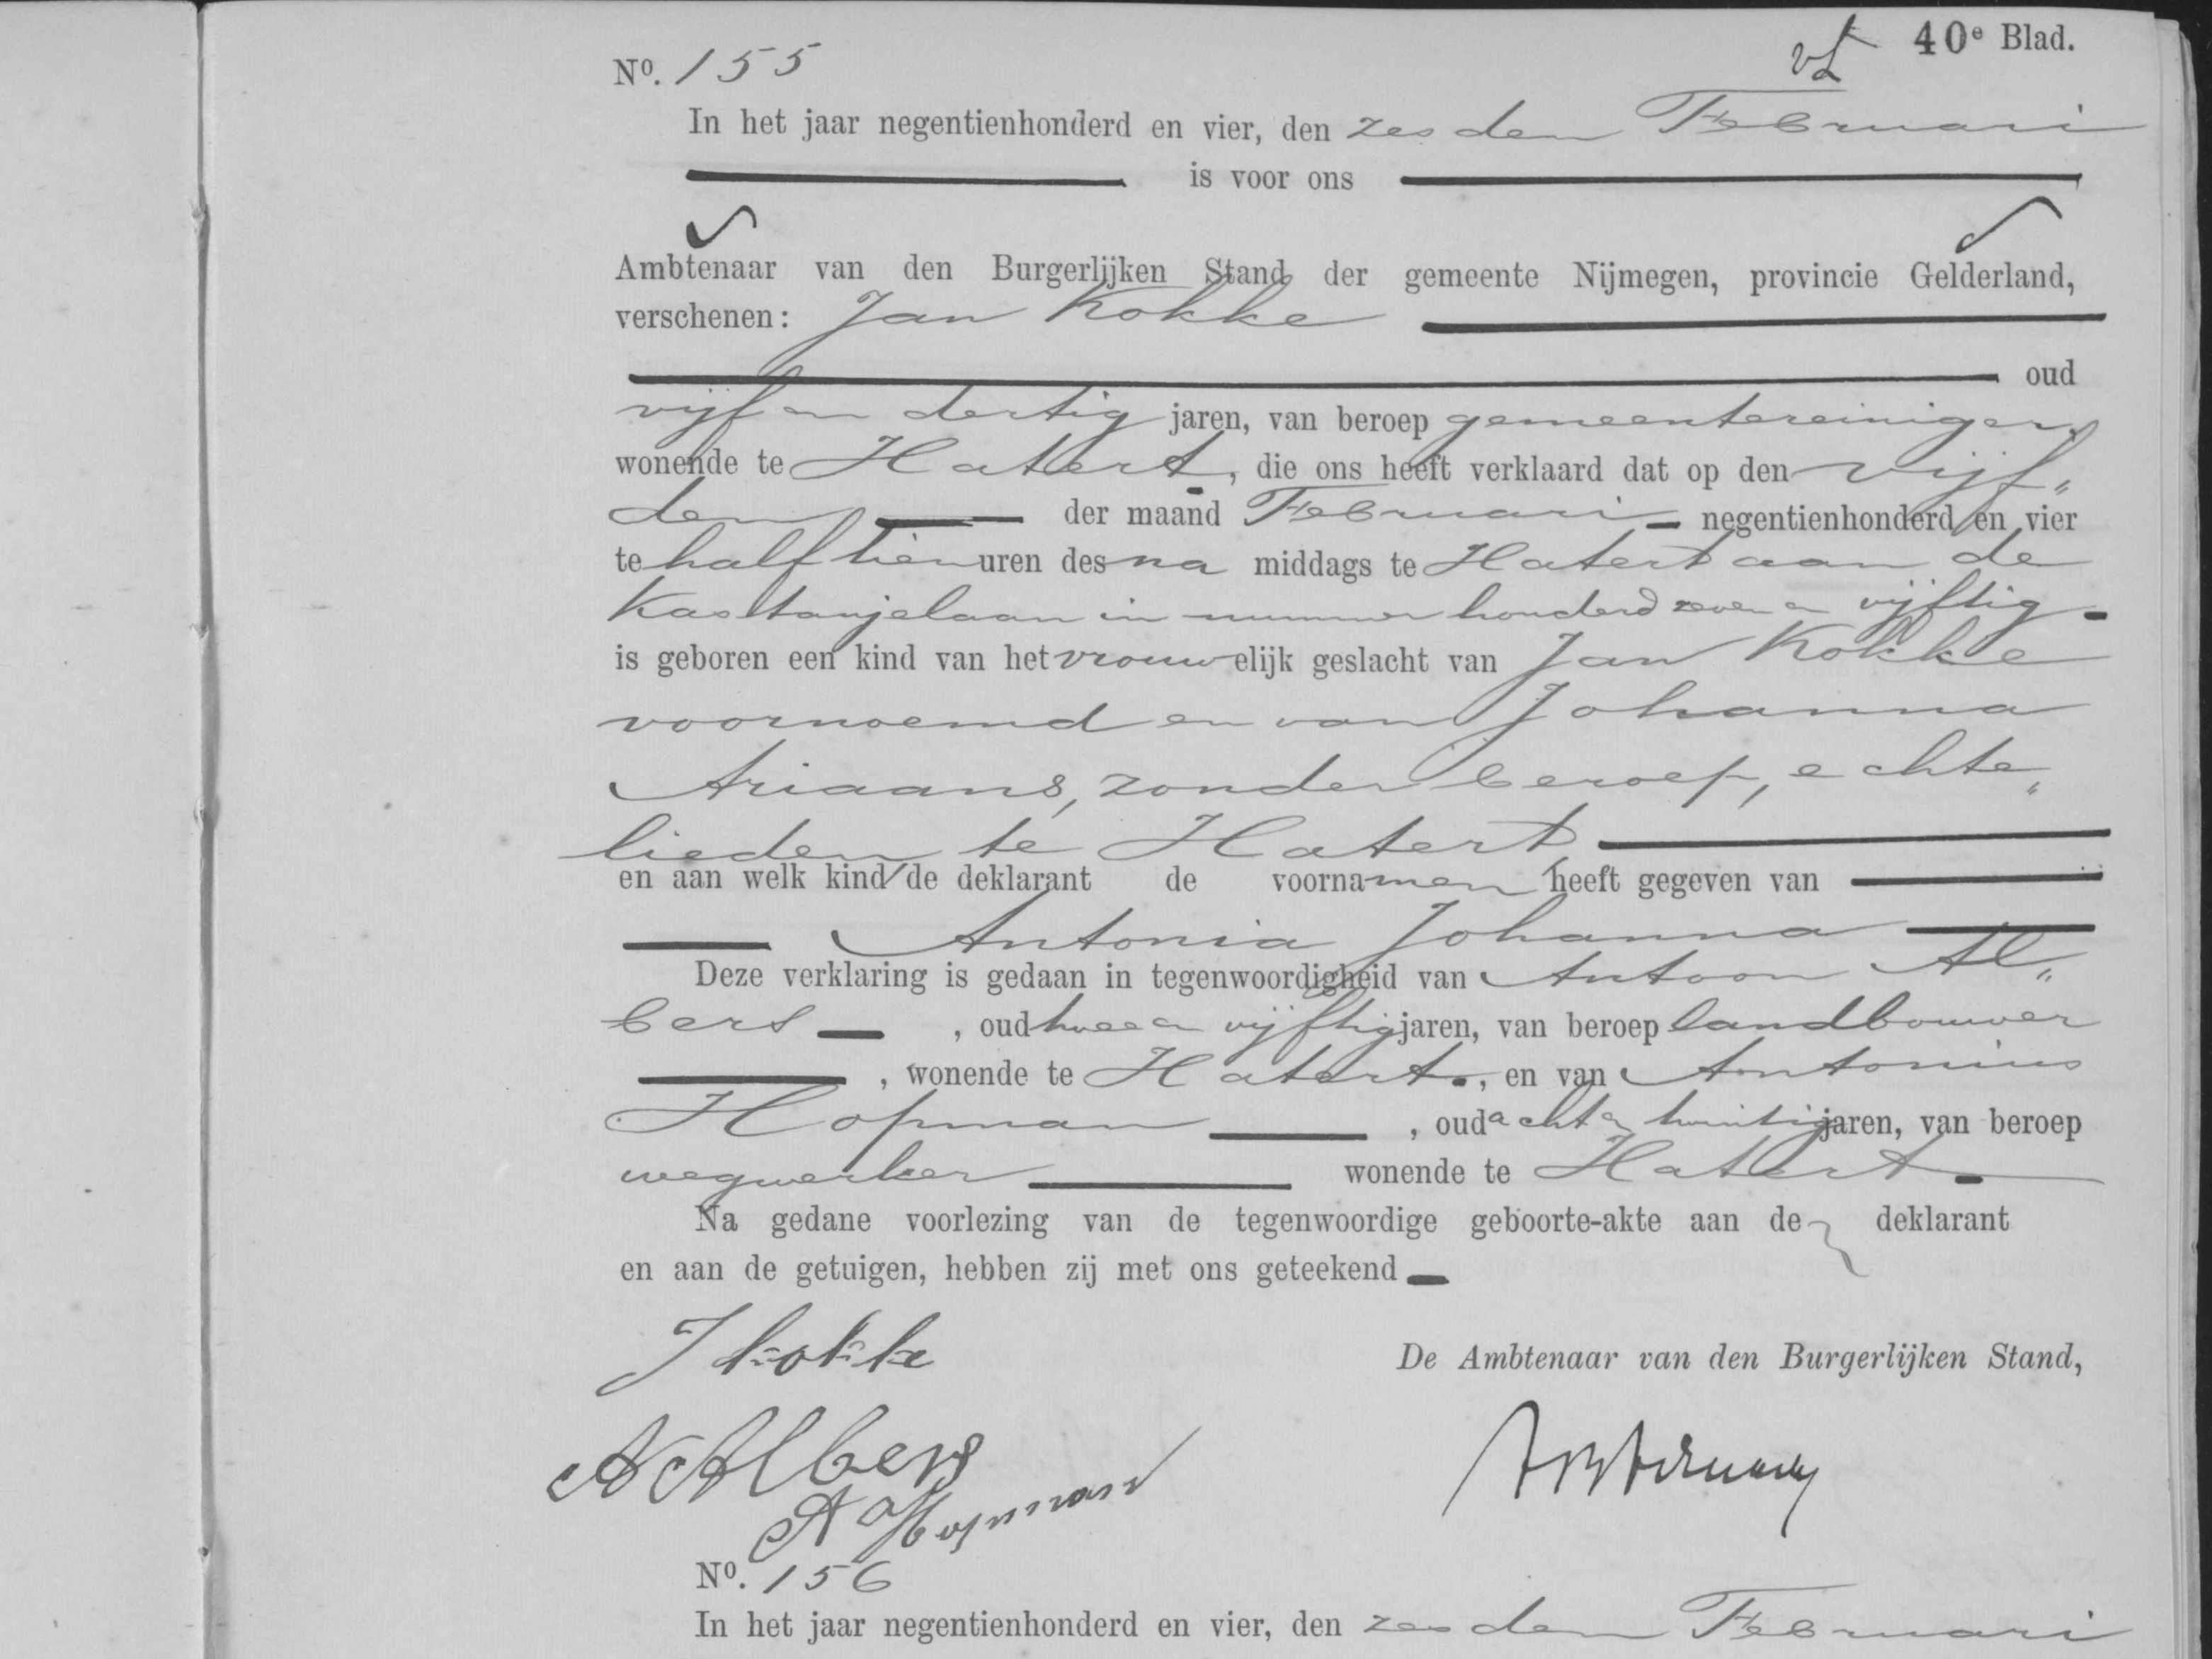 40e Blad.
No. 155
In het jaar negentienhonderd en vier, den zesden Februari
is voor ons
Ambtenaar van den Burgerlijken Stand der gemeente Nijmegen, provincie Gelderland,
verschenen: Jan Kokke
oud
vijf en dertig jaren, van beroep gemeentereiniger,
wonende te Hatert, die ons heeft verklaard dat op den vijf„
den der maand Februari negentienhonderd en vier
te half tien uren des na middags te Hatert aan de
Kastanjelaan in nummer honderd zeven en vijftig
is geboren een kind van het vrouwelijk geslacht van Jan Kokke
voornoemd en van Johanna
Ariaans, zonder beroep, echte„
lieden te Hatert
en aan welk kind de deklarant de voornamen heeft gegeven van
Antonia Johanna
Deze verklaring is gedaan in tegenwoordigheid van Antoon Al„
bers, oud twee en vijftig jaren, van beroep landbouwer
, wonende te Hatert, en van Antonius
Hopman, oud acht en twintig jaren, van beroep
wegwerker wonende te Hatert
Na gedane voorlezing van de tegenwoordige geboorte-akte aan de deklarant
en aan de getuigen, hebben zij met ons geteekend
J Kokke
De Ambtenaar van den Burgerlijken Stand,
A Albers
A Hopman
No. 156
In het jaar negentienhonderd en vier, den zesden Februari